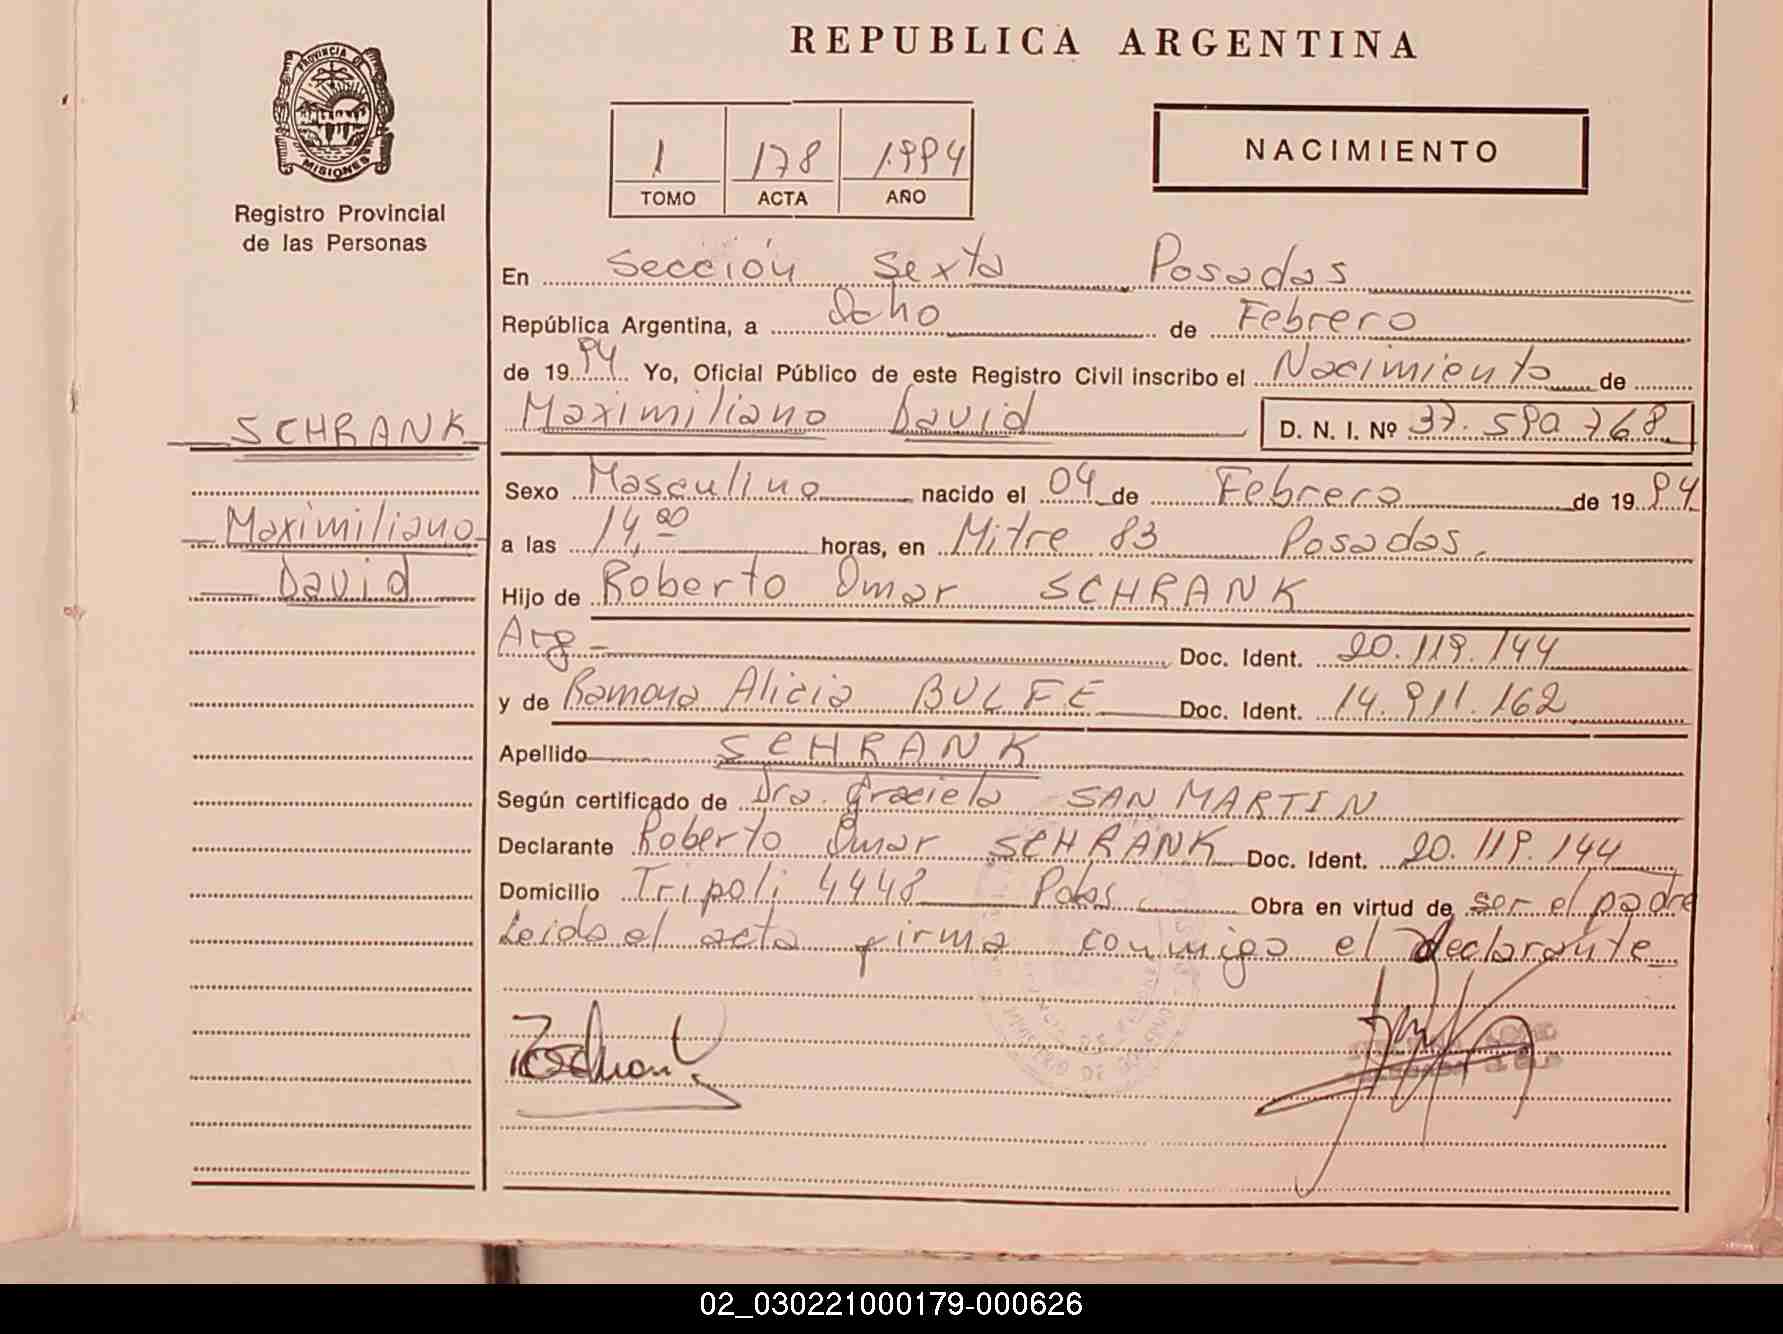 REPUBLICA ARGENTINA
PROVINCIA DE
MISIONES
Registro Provincial
de las Personas
1 178 1994
TOMO ACTA AÑO
NACIMIENTO
En Sección Sexta Posadas
República Argentina, a Ocho de Febrero
de 1994 Yo, Oficial Público de este Registro Civil inscribo el Nacimiento de
SCHRANK
Maximiliano David D. N. I. Nº 37.590.768
Sexo Masculino nacido el 04 de Febrero de 1994
Maximiliano
a las 14,00 horas, en Mitre 83 Posadas.
David
Hijo de Roberto Omar SCHRANK
Arg - Doc. Ident. 20.119.144
y de Ramona Alicia BULFE Doc. Ident. 14.911.162
Apellido SCHRANK
Según certificado de Dra. Graciela SAN MARTIN
Declarante Roberto Omar SCHRANK Doc. Ident. 20.119.144
Domicilio Tripoli 4448 Pdas. Obra en virtud de ser el padre
Leida el acta firma conmigo el declarante
02_030221000179-000626